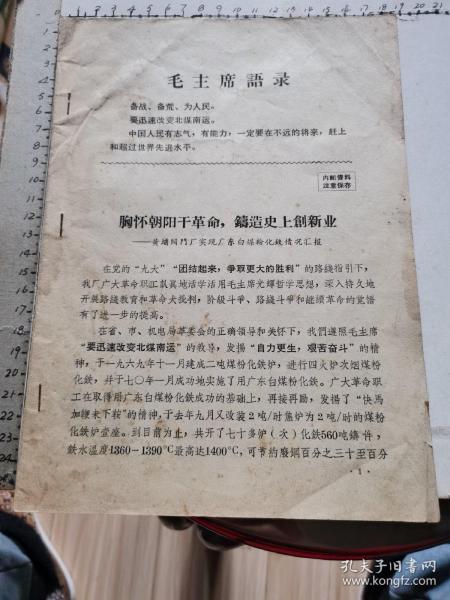 毛主席語录
备战、备荒、为人民。
要迅速改变北煤南运。
中国人民有志气，有能力，一定要在不远的将来，赶上
和超过世界先进水平。
内部資料
注意保存
胸怀朝阳干革命，鑄造史上創新业
——黄埔閥門厂实现广东白煤粉化鉄情况汇报
在党的“九大”“团結起来，争取更大的胜利”的路綫指引下，
我厂广大革命职工认真地活学活用毛主席光輝哲学思想，深入持久地
开展路綫教育和革命大批判，阶級斗爭、路綫斗爭和继續革命的觉悟
有了进一步的提高。
在省、市、机电局革委会的正确領导和关怀下，我們遵照毛主席
“要迅速改变北煤南运”的教导，发揚“自力更生，艰苦奋斗”的精
神，于一九六九年十一月建成二吨煤粉化鉄炉，进行四火炉次烟煤粉
化鉄，并于七〇年一月成功地实施了用广东白煤粉化鉄。广大革命职
工在取得用广东白煤粉化鉄成功的基础上，再接再励，发揚了“快馬
加鞭未下鞍”的精神，于去年九月又改装2吨/时焦炉为2吨/时的煤粉
化鉄炉壹座。到目前为止，共开了七十多炉（次）化鉄560吨鑄件，
鉄水温度1360－1390℃最高达1400℃，可节約廢鋼百分之三十至百分
·1·
孔夫子旧书网
www.kongfz.com